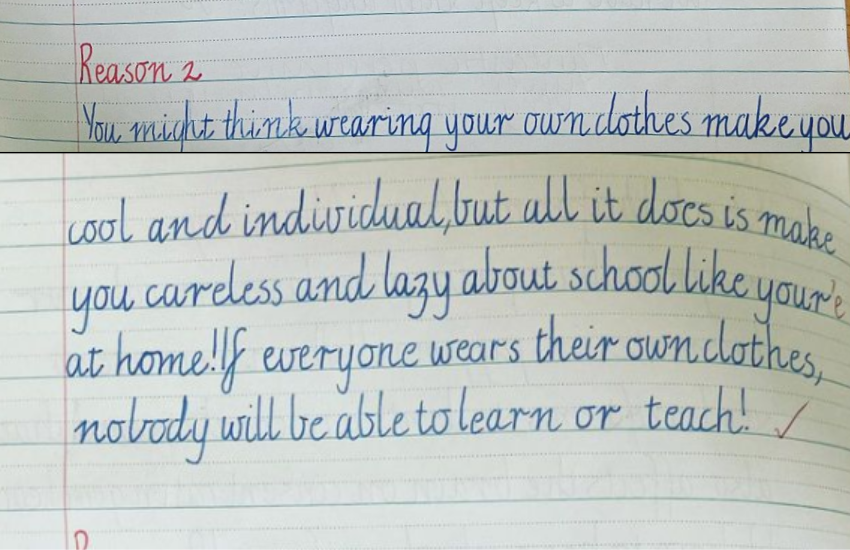 Reason 2
You might think wearing your own clothes make you
cool and individual, but all it does is make
you careless and lazy about school like your'e
at home! If everyone wears their own clothes,
nobody will be able to learn or teach! ✓